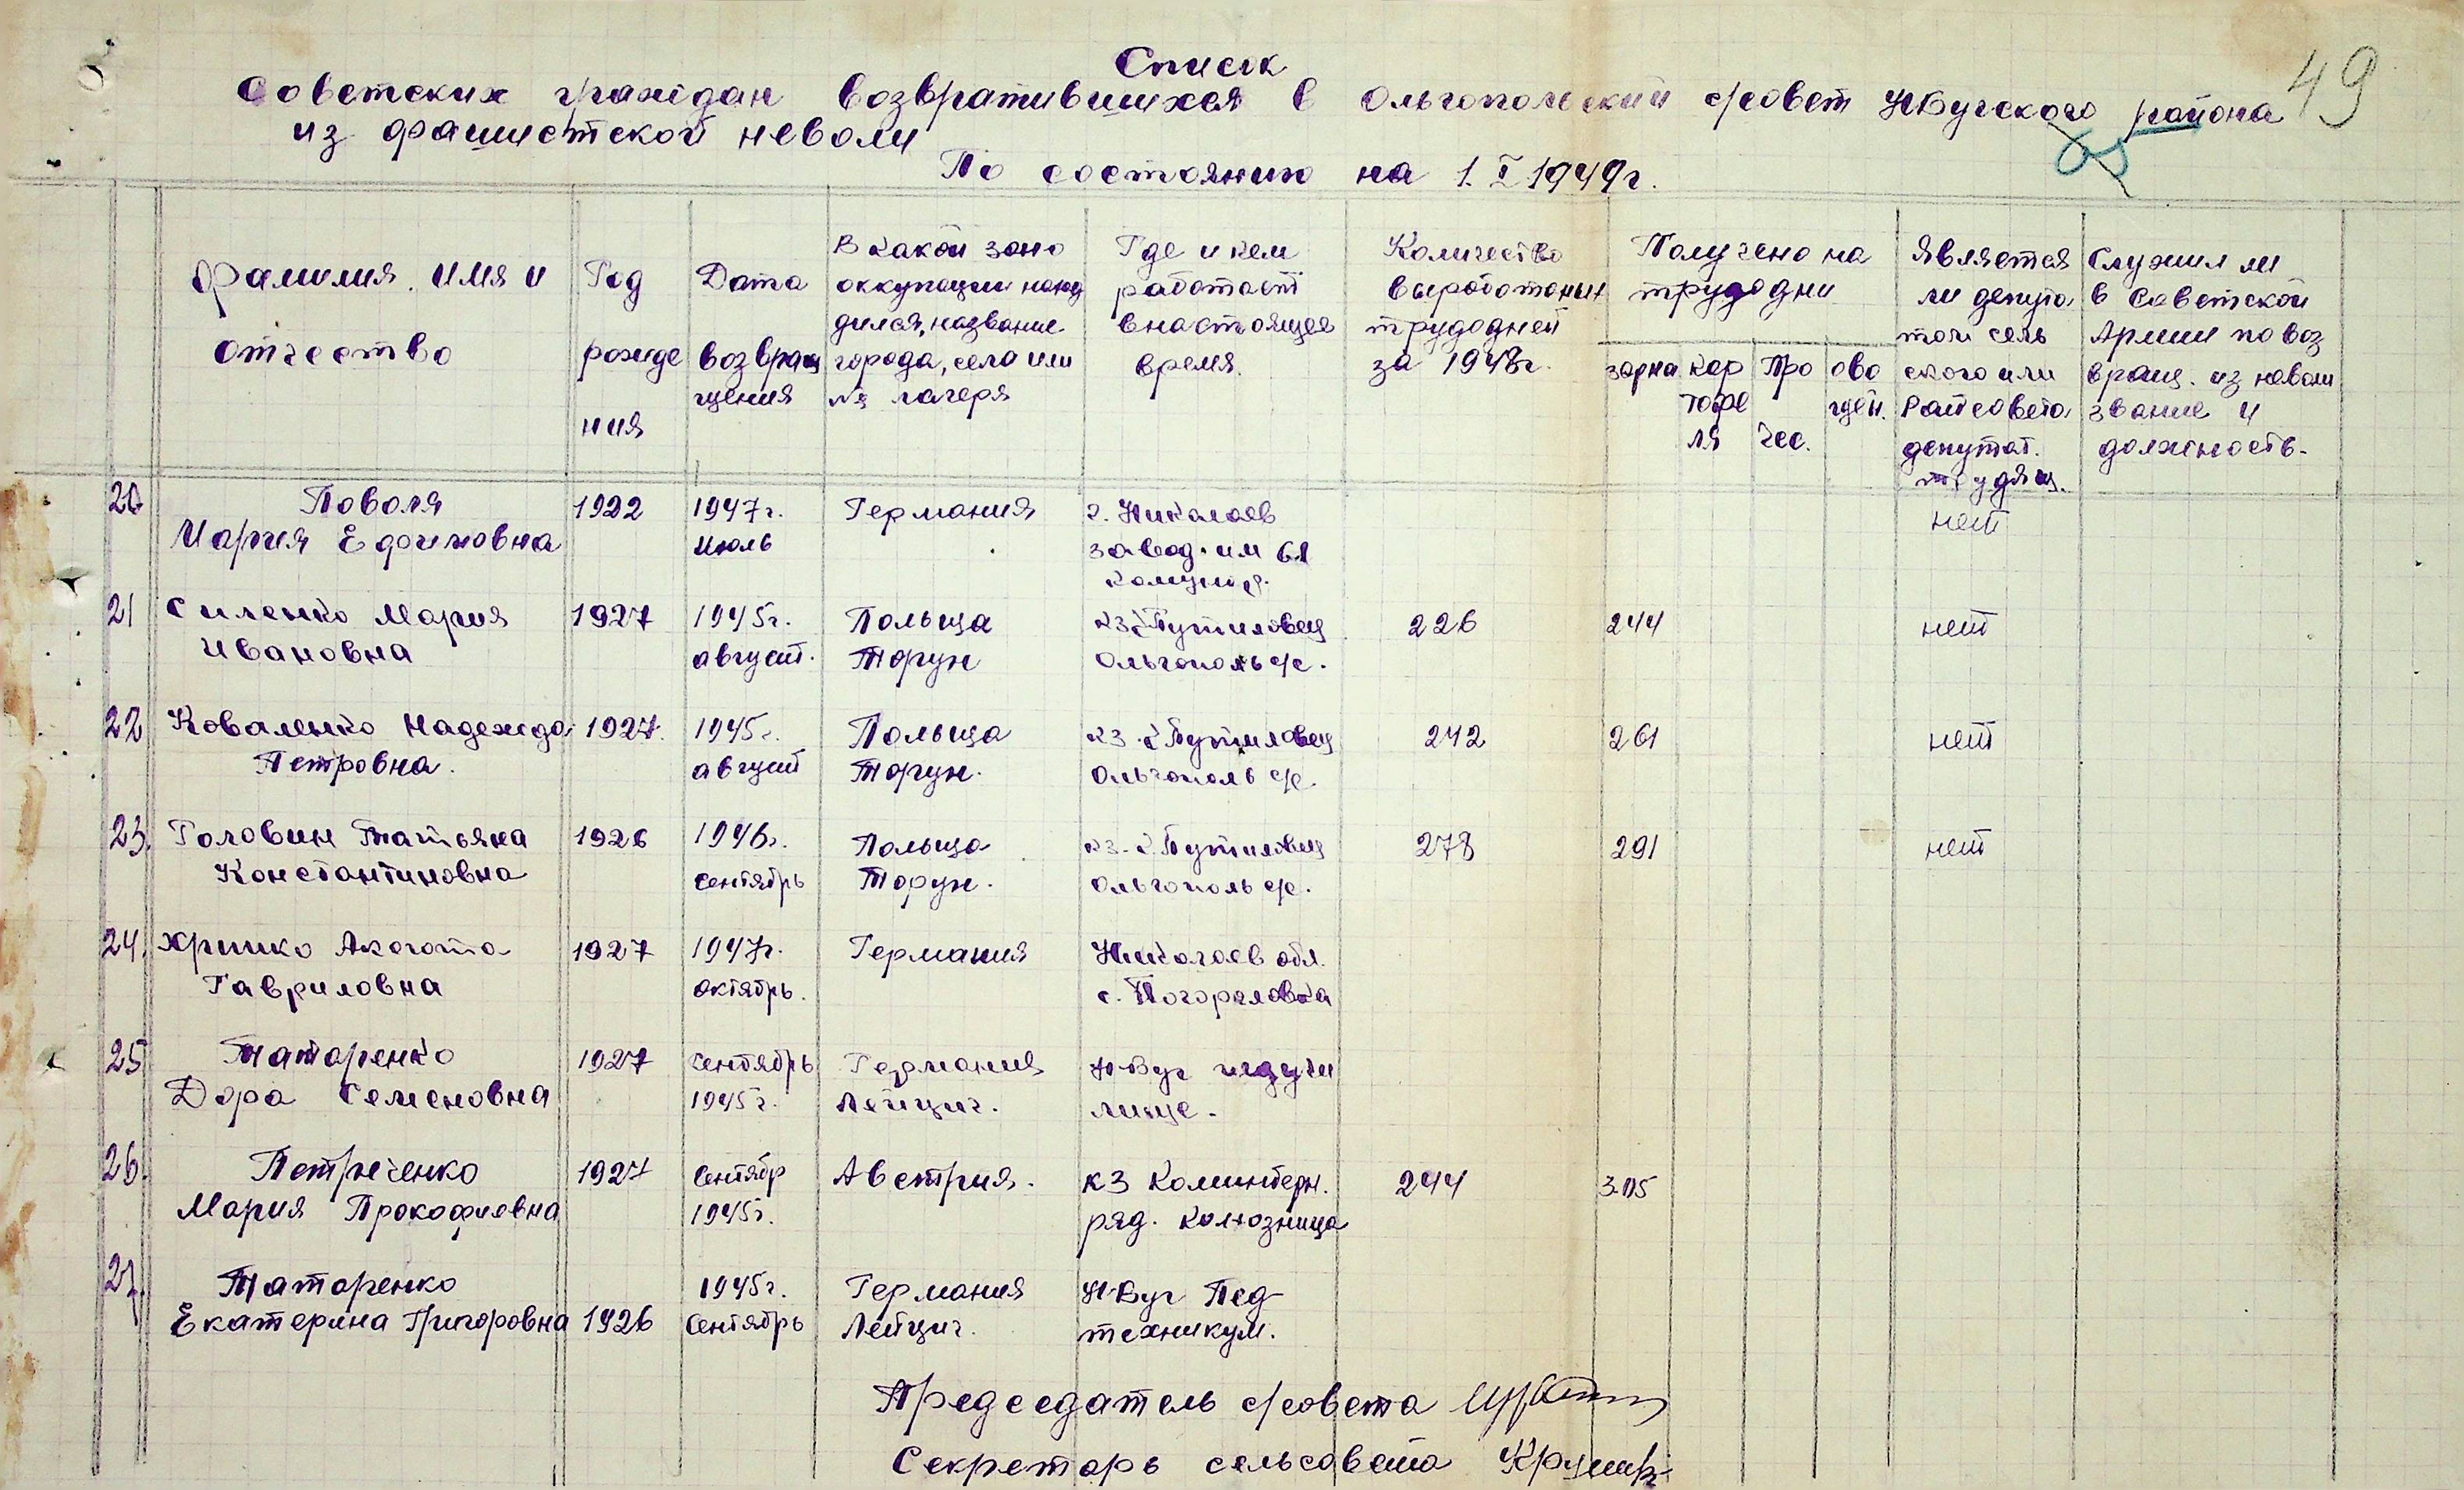 49
Список
Советских граждан возвратившихся в Ольгопольский с/совет НБугского района
из фашистской неволи
По состоянию на 1.I 1949г.
Фамилия, имя и отчество
Год рожде ния
Дата возвращ щения
В какой зоне
оккупации наход
дился, название
города, села или
№ лагеря
Где и кем
работает
в настоящее
время.
Количество
выработаных
трудодней
за 1948г.
Получено на
трудодни
зерна
кар тофе ля
Про чес.
ово щей.
Является
ли депута
том сель
ского или
Райсовета
депутат.
трудящ.
Служил ли
в Советской
Армии по воз
вращ. из неволи
звание и
должность.
20 Поволя 1922 1947г. Германия г. Николаев нет
Мария Ефимовна июль завод. им 61
комунар.
21 Силенко Мария 1927 1945г. Польща кз Путиловец 226 244 нет
Ивановна август. Торун Ольгополь с/с.
22 Коваленко Надежда 1927. 1945г. Польща кз. Путиловец 242 261 нет
Петровна. август Торун. Ольгополь с/с.
23. Головин Татьяна 1926 1946г. Польща кз. Путиловец 278 291 нет
Константиновна сентябрь Торун. Ольгополь с/с.
24. Хришко Агота 1927 1947г. Германия Николаев обл.
Гавриловна октябрь. с. Погореловка
25 Татаренко 1927 сентябрь Германия Н-Буг педучи
Дора Семеновна 1945г. Лейпциг. лище.
26. Петриченко 1927 Сентябр Австрия. кз Коминтерн. 244 305
Мария Прокофиевна 1945г. ряд. колхозница
27. Татаренко 1945г. Германия Н-Буг Пед
Екатерина Григоровна 1926 Сентябрь Лейпциг. техникум.
Председатель с/совета
Секретарь сельсовета